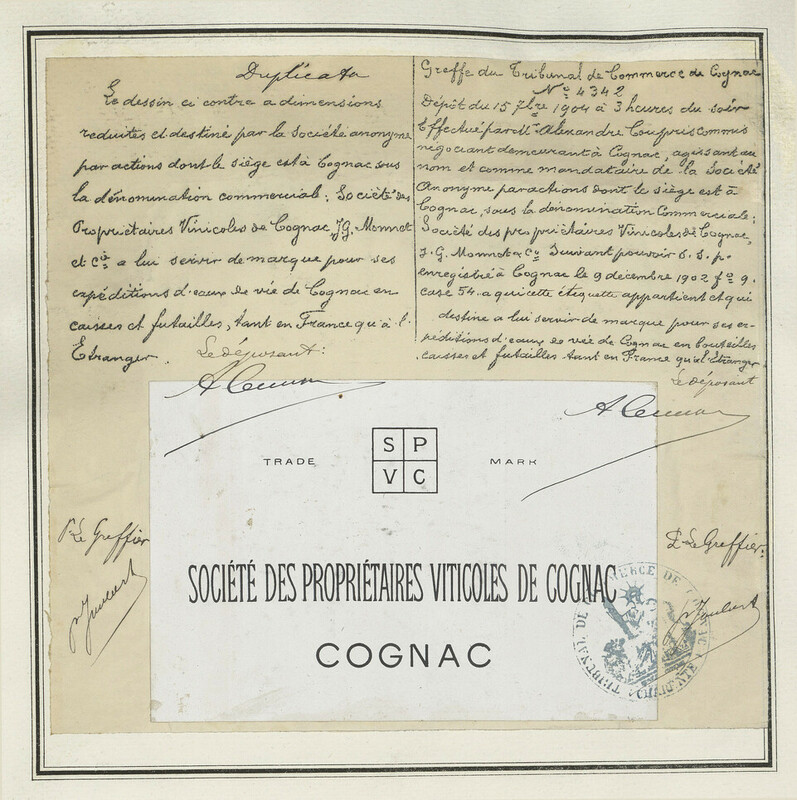 Duplicata
Le dessin ci contre a dimensions
reduites et destiné par la Société anonyme
par actions dont le siège est à Cognac sous
la dénomination commerciale: Société des
Propriétaires Vinicoles de Cognac, J.G. Monnet
et Co a lui servir de marque pour ses
expéditions d'eaux de vie de Cognac en
caisses et futailles, tant en France qu'à l'
Etranger.
Le déposant:
Greffe du Tribunal de Commerce de Cognac
No 4342
Dépôt du 15 7bre 1904 à 3 heures du soir
Effectué par Mr Alexandre Coupris commis
négociant demeurant à Cognac, agissant au
nom et comme mandataire de la Société
Anonyme par actions dont le siège est à
Cognac, sous la dénomination Commerciale:
Société des propriétaires Vinicoles de Cognac,
J. G. Monnet & Co Suivant pouvoir S. S. p.
enregistré à Cognac le 9 décembre 1902 fo 9.
case 54. a qui cette étiquette appartient et qui
destine a lui servir de marque pour ses ex-
péditions d'eaux de vie de Cognac en bouteilles
caisses et futailles tant en France qu'à l'Etranger
Le déposant
TRADE
S P
V C
MARK
P. Le Greffier
P. Le Greffier.
SOCIÉTÉ DES PROPRIÉTAIRES VITICOLES DE COGNAC
COGNAC
TRIBUNAL DE COMMERCE DE COGNAC